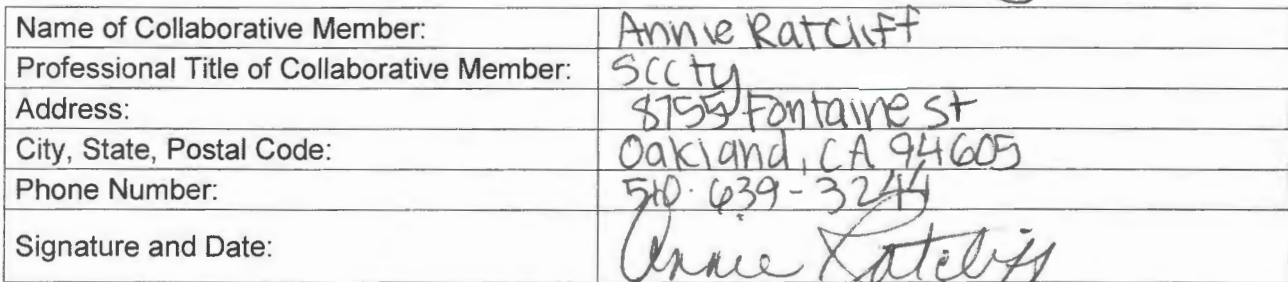 Name of Collaborative Member: Annie Ratcliff
Professional Title of Collaborative Member: Sccty
Address: 8755 Fontaine St
City, State, Postal Code: Oakland, CA 94605
Phone Number: 510-639-3244
Signature and Date: Annie Ratcliff